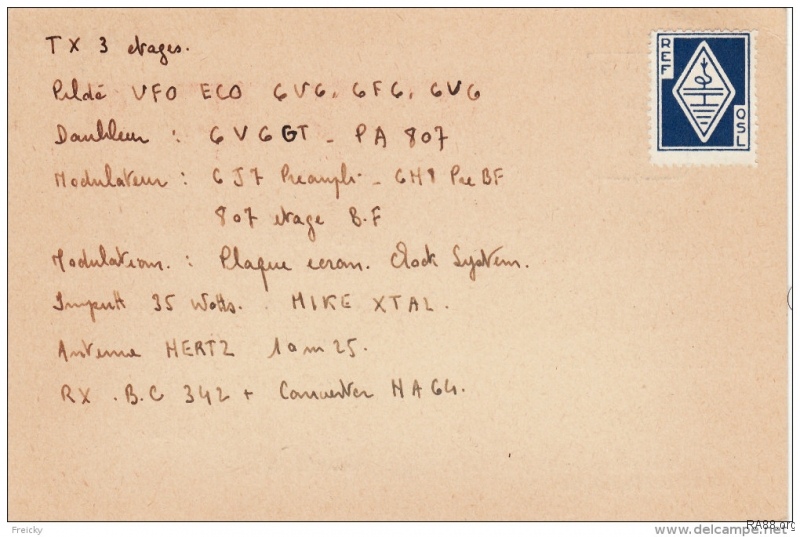 TX 3 etages.
REF
Piloté VFO ECO 6V6, 6F6, 6V6
QSL
Doubleur : 6V6 GT - PA 807
Modulateur : 6J7 Preampli - 6H8 Pre BF
807 etage B.F
Modulation. : Plaque ecran. Clock System.
Imputt 35 Watts. MIKE XTAL.
Antenne HERTZ 10m25.
RX .B.C 342 + Converter HA64.
Freicky
RA88.org
www.delcampe.net